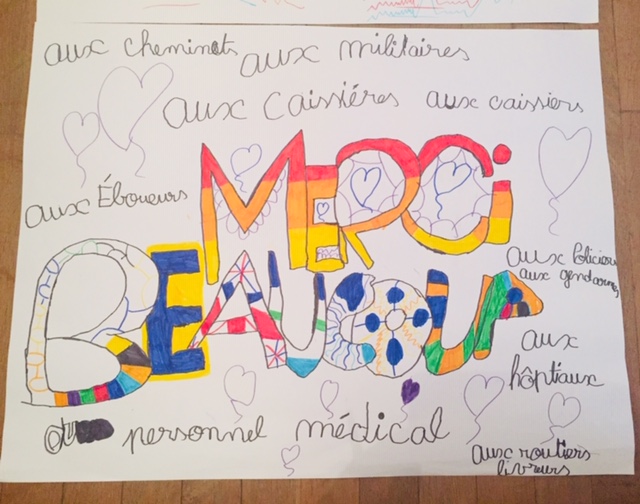 aux cheminots aux militaires
aux caissiéres aux caissiers
aux Éboueurs
MERCi
BEAUCOUP
aux Policiers
aux gendarmes
aux
hôptiaux
personnel médical
aux routiers
livreurs